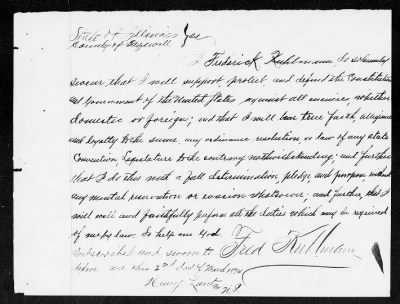 State of Illinois } ss
County of Tazewell
I Frederick Kuhlmann, do solemnly
swear, that I will support protect and defend the Constitution
and Government of the United States, against all enemies, whether
domestic or foreign; and that I will bear true faith allegiance
and loyalty to the same, any ordinance resolution or law of any state
Convention, Legislature to the contrary notwithstanding; and further
that I do this with a full determination, pledge and purpose without
any mental reservation or evasion whatsoever; and further, that I
will well and faithfully perform all the duties which may be required
of me by law. So help me God.
Fred Kuhlmann
Subscribed and sworn to
before me this 2nd day of March
Henry N.P.